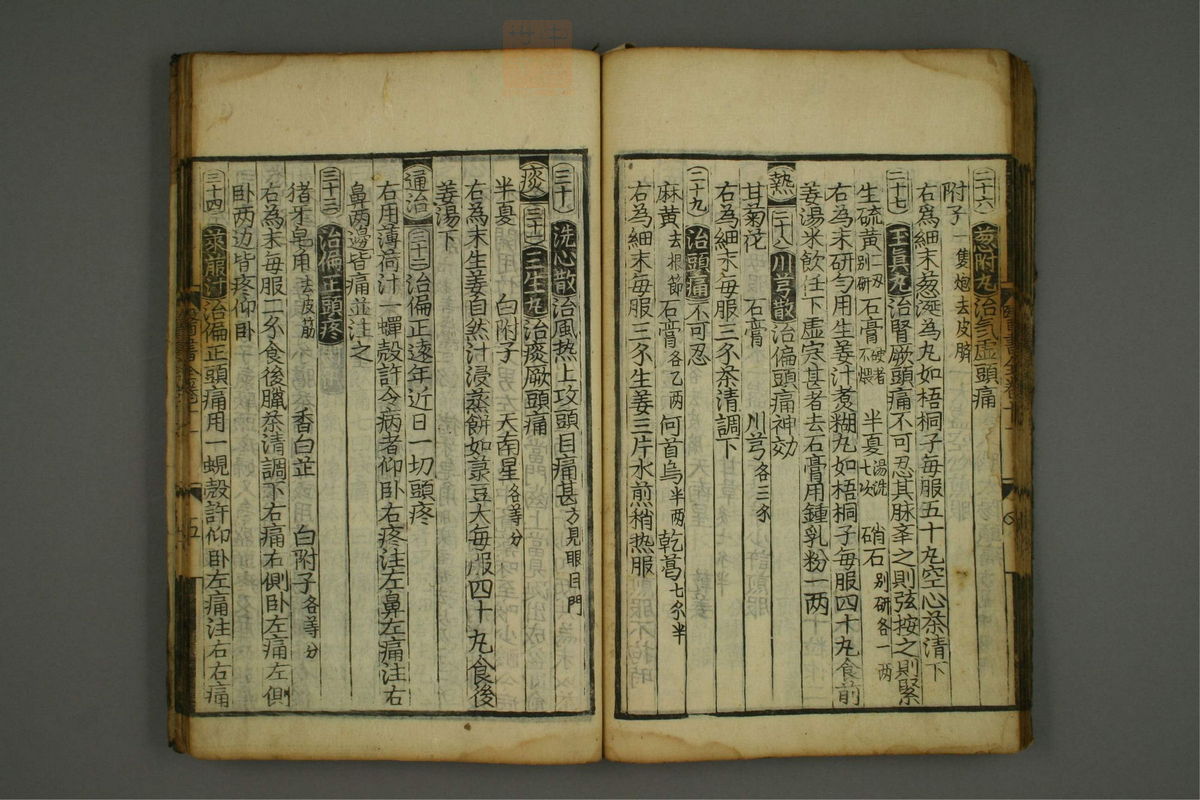 二十六 葱附丸 治气虚頭痛
附子一隻炮去皮臍
右爲細末葱涎為丸如梧桐子每服五十丸空心茶清下
二十七 玉真丸 治腎厥頭痛不可忍其脉举之則弦按之則緊
生硫黄二刄别研 石膏破者不煨 半夏湯洗七次 硝石别研各一两
右為末研匀用生姜汁煮糊丸如梧桐子每服四十丸食前
姜湯米飲任下虚寒甚者去石膏用鍾乳粉一两
熱 二十八 川芎散 治偏頭痛神効
甘菊花 石膏 川芎各三分
右為細末每服三分茶清調下
二十九 治頭痛 不可忍
麻黄去根節 石膏各乙两 何首烏半两 乾葛七分半
右為細末每服三分生姜三片水煎稍热服
三十 洗心散 治風热上攻頭目痛甚方見眼目門
痰 三十一 三生丸 治痰厥頭痛
半夏 白附子 天南星各等分
右為末生姜自然汁浸蒸餅如菉豆大每服四十丸食後
姜湯下
通治 三十二 治偏正遠年近日一切頭疼
右用薄荷汁一蟬殻許令病者仰卧右疼注左鼻左痛注右
鼻两邊皆痛並注之
三十三 治偏正頭疼
猪牙皂角去皮筋 香白芷 白附子各等分
右為末每服二分食後臘茶清調下右痛右側卧左痛左側
卧两边皆疼仰卧
三十四 汁 治偏正頭痛用一蜆殻許仰卧左痛注右右痛
五